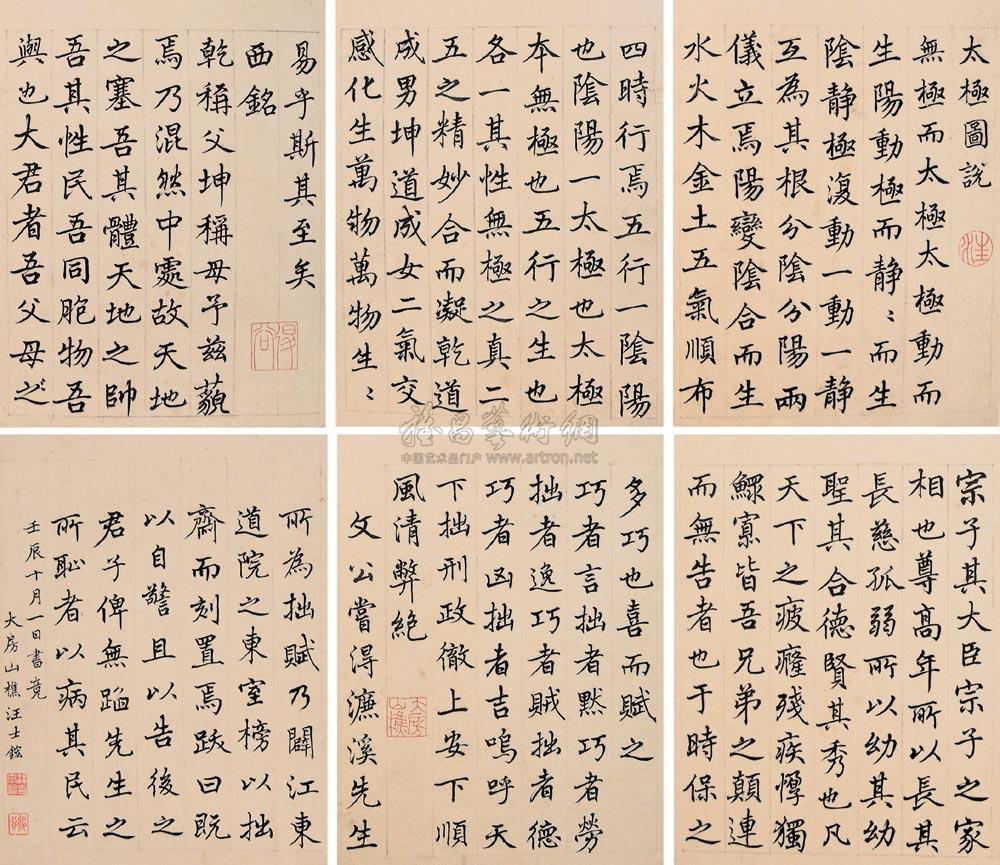 太極圖說
無極而太極太極動而
生陽動極而静〻而生
陰静極復動一動一静
互為其根分陰分陽兩
儀立焉陽變陰合而生
水火木金土五氣順布
四時行焉五行一陰陽
也陰陽一太極也太極
本無極也五行之生也
各一其性無極之真二
五之精妙合而凝乾道
成男坤道成女二氣交
感化生萬物萬物生〻
易乎斯其至矣
西銘
乾稱父坤稱母予兹藐
焉乃混然中處故天地
之塞吾其體天地之帥
吾其性民吾同胞物吾
與也大君者吾父母之
宗子其大臣宗子之家
相也尊高年所以長其
長慈孤弱所以幼其幼
聖其合德賢其秀也凡
天下之疲癃殘疾惸獨
鰥寡皆吾兄弟之顛連
而無告者也于時保之
多巧也喜而賦之
巧者言拙者黙巧者勞
拙者逸巧者賊拙者德
巧者凶拙者吉嗚呼天
下拙刑政徹上安下順
風清弊絶
文公嘗得濂溪先生
所為拙賦乃闢江東
道院之東室榜以拙
齋而刻置焉跋曰既
以自警且以告後之
君子俾無蹈先生之
所恥者以病其民云
壬辰十月一日書竟
大房山樵汪士鋐
汪
大房山樵
雅昌藝術網
中国艺术品门户 www.artron.net